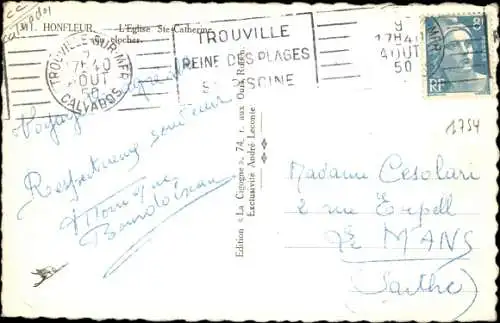 141. HONFLEUR. L'Eglise Ste-Catherine
clocher.
TROUVILLE-SUR-MER
17H40
AOUT
50
CALVADOS
TROUVILLE
REINE DES PLAGES
SA PISCINE
9
17H40
AOUT
50
RF
1754
Respectueux souvenir
Monique
Edition « La Cigogne », 74, r. aux Ours, Rouen
Exclusivité André Leconte
Madame Cesolari
2 rue Erpell
LE MANS
(Sarthe)